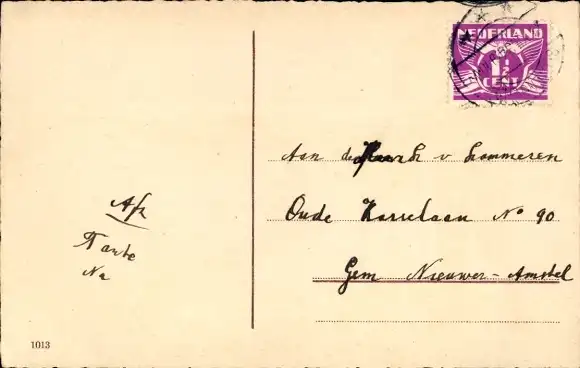 NEDERLAND
1½
CENT
Aan de v Lommeren
Oude Karselaan No 90
Gem Nieuwer-Amstel
Afz
Tante
Na
1013